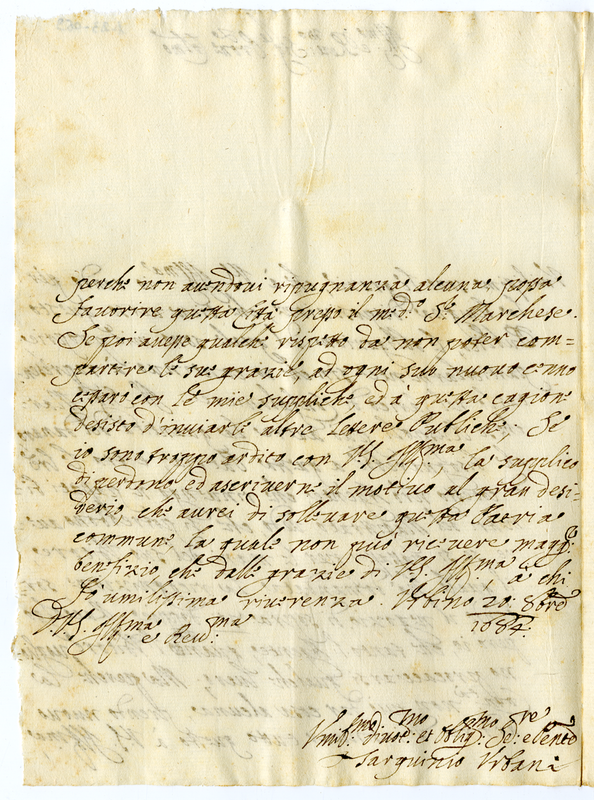 perche non auendoui ripugnanza alcuna possa
favorire questa Città presso il med.º S.r Marchese.
Se poi auesse qualche rispetto da non poter com=
partire le sue grazie, ad ogni suo nuovo cenno
cessarò con le mie suppliche, ed à questa cagione
desisto d'inuiarle altre lettere Publiche, Se
io sono troppo ardito con V.S. Ill.ma, la supplico
di perdono, ed ascriuerne il motiuo al gran desi-
derio, che aurei di solleuare questa Patria
commune, la quale non può riceuere magg.r
benefizio, che dalle grazie di V.S. Ill.ma, à chi
fò umilissima riuerenza. Urbino 20. 8bre
1684.
D.V.S. Ill.ma e Reu.ma
Umil.mo Diuot.mo et Oblig.mo Se.re
Tarquinio Urbani